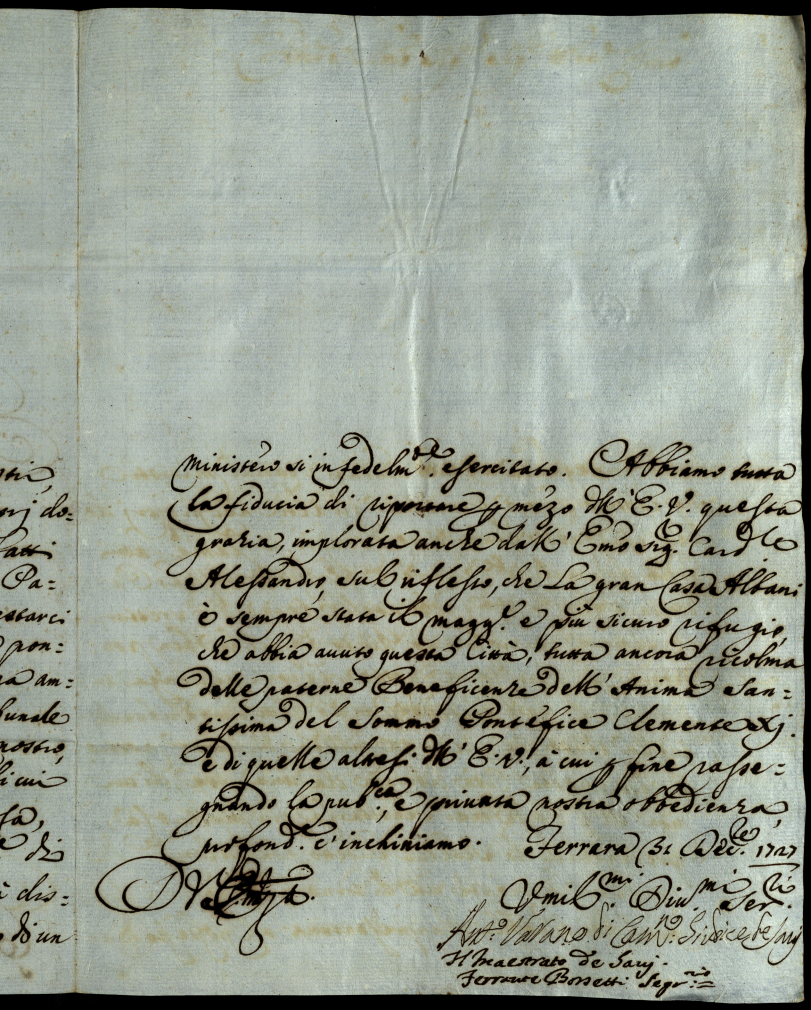 sti,
orj do=
fatti
Pa=
estarci
pon=
ra am=
bunale
nostro,
li cui
sa,
e di
à dis=
o di un
ministero si infedelm.te esercitato. Abbiamo tutta
la fiducia di riportare p mezo dell' E. V. questa
grazia, implorata anche dall' Emo Sig. Card.le
Alessandro, sul riflesso, che La gran Casa Albani
è sempre stata il magg.r e più sicuro rifugio,
che abbia auuto questa Città, tutta ancora ricolma
delle paterne Beneficenze dell' Anima San-
tissima del Sommo Pontefice Clemente xj.
e di quelle altresì dell' E. V., à cui p fine rasse-
gnando la pub.ca, e priuata nostra obbedienza,
profond.te c'inchiniamo. Ferrara 31 Dec.re 1727
D V E
Vmil.mi Diu.mi Ser.ri
Ant.o Varano di Cam.no Giudice de Sauj
Il Maestrato de Sauj.
Ferrante Borsetti Segr.rio